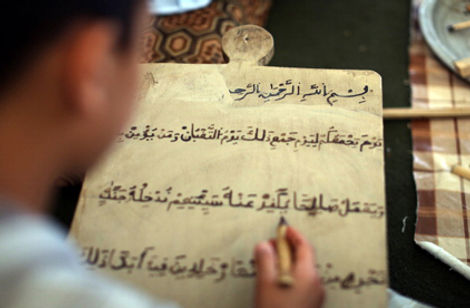 بِسْمِ اللَّهِ الرَّحْمَنِ الرَّحِ
يَوْمَ يَجْمَعُكُمْ لِيَوْمِ جَمْعِ ذَلِكَ يَوْمُ التَّغَابُنْ وَمَنْ يُؤْمِنْ
وَيَعْمَلْ صَالِحًا يُكَفِّرْ عَنْهُ نُدْخِلْهُ
تَجْرِي مِنْ خَلِدِينَ فِيهَا أَبَدًا ذَلِكَ